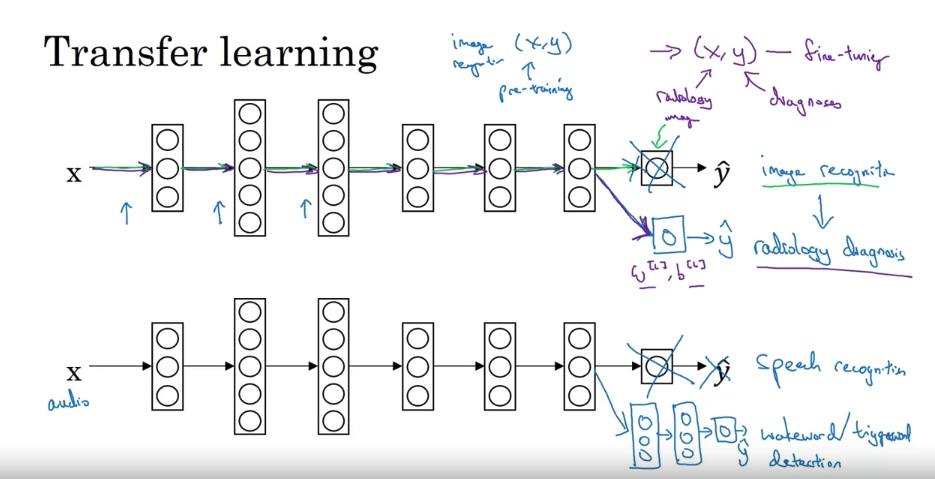 Transfer learning
image recognition (x,y)
pre-training
→ (x, y) — fine-tuning
radiology image
diagnoses
x
ŷ
image recognition
↓
ŷ
radiology diagnosis
w[L], b[L]
x
audio
ŷ
speech recognition
ŷ
wakeword/triggerword
detection